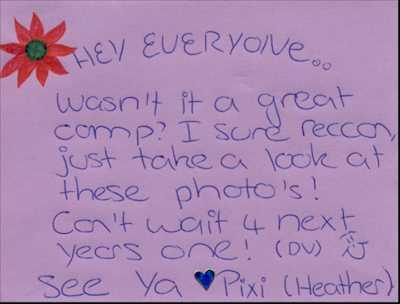 HEY EVERYONE...
Wasn't it a great
camp? I sure reccon,
just take a look at
these photo's!
Can't wait 4 next
years one! (DV)
See Ya Pixi (Heather)